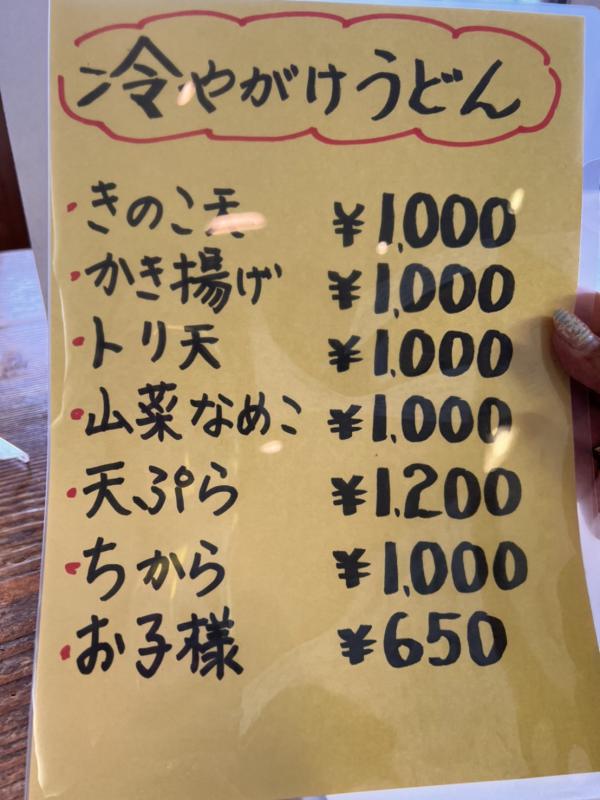 冷やがけうどん
・きのこ天 ¥1,000
・かき揚げ ¥1,000
・トリ天 ¥1,000
・山菜なめこ ¥1,000
・天ぷら ¥1,200
・ちから ¥1,000
・お子様 ¥650